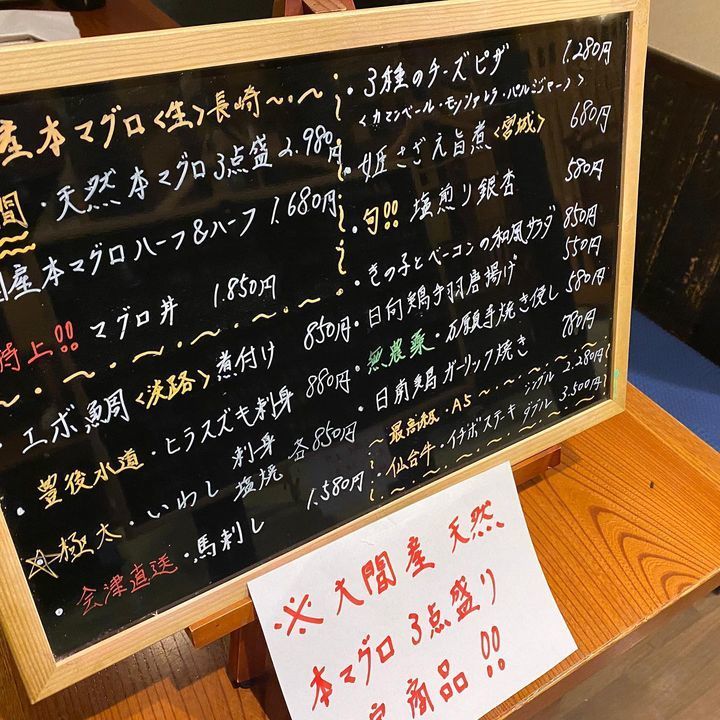 産本マグロ〈生〉長崎〜・〜
間・天然本マグロ3点盛 2.980円
産本マグロハーフ&ハーフ 1.680円
特上!! マグロ丼 1.850円
・エボ鯛〈淡路〉煮付け 850円
・豊後水道・ヒラスズキ刺身 880円
☆極太・いわし 刺身 塩焼 各850円
・会津直送・馬刺し 1.580円
・3種のチーズピザ 1.280円
〈カマンベール・モッツァレラ・パルジャーノ〉
・姫さざえ旨煮〈宮城〉 680円
・旬!! 塩煎り銀杏 580円
・きの子とベーコンの和風サラダ 850円
・日向鶏手羽唐揚げ 550円
・無農薬・万願寺焼き浸し 580円
・日南鶏ガーリック焼き 780円
〜最高級・A5
仙台牛・イチボステーキ シングル 2.280円
ダブル 3.500円
※大間産天然
本マグロ3点盛り
商品!!